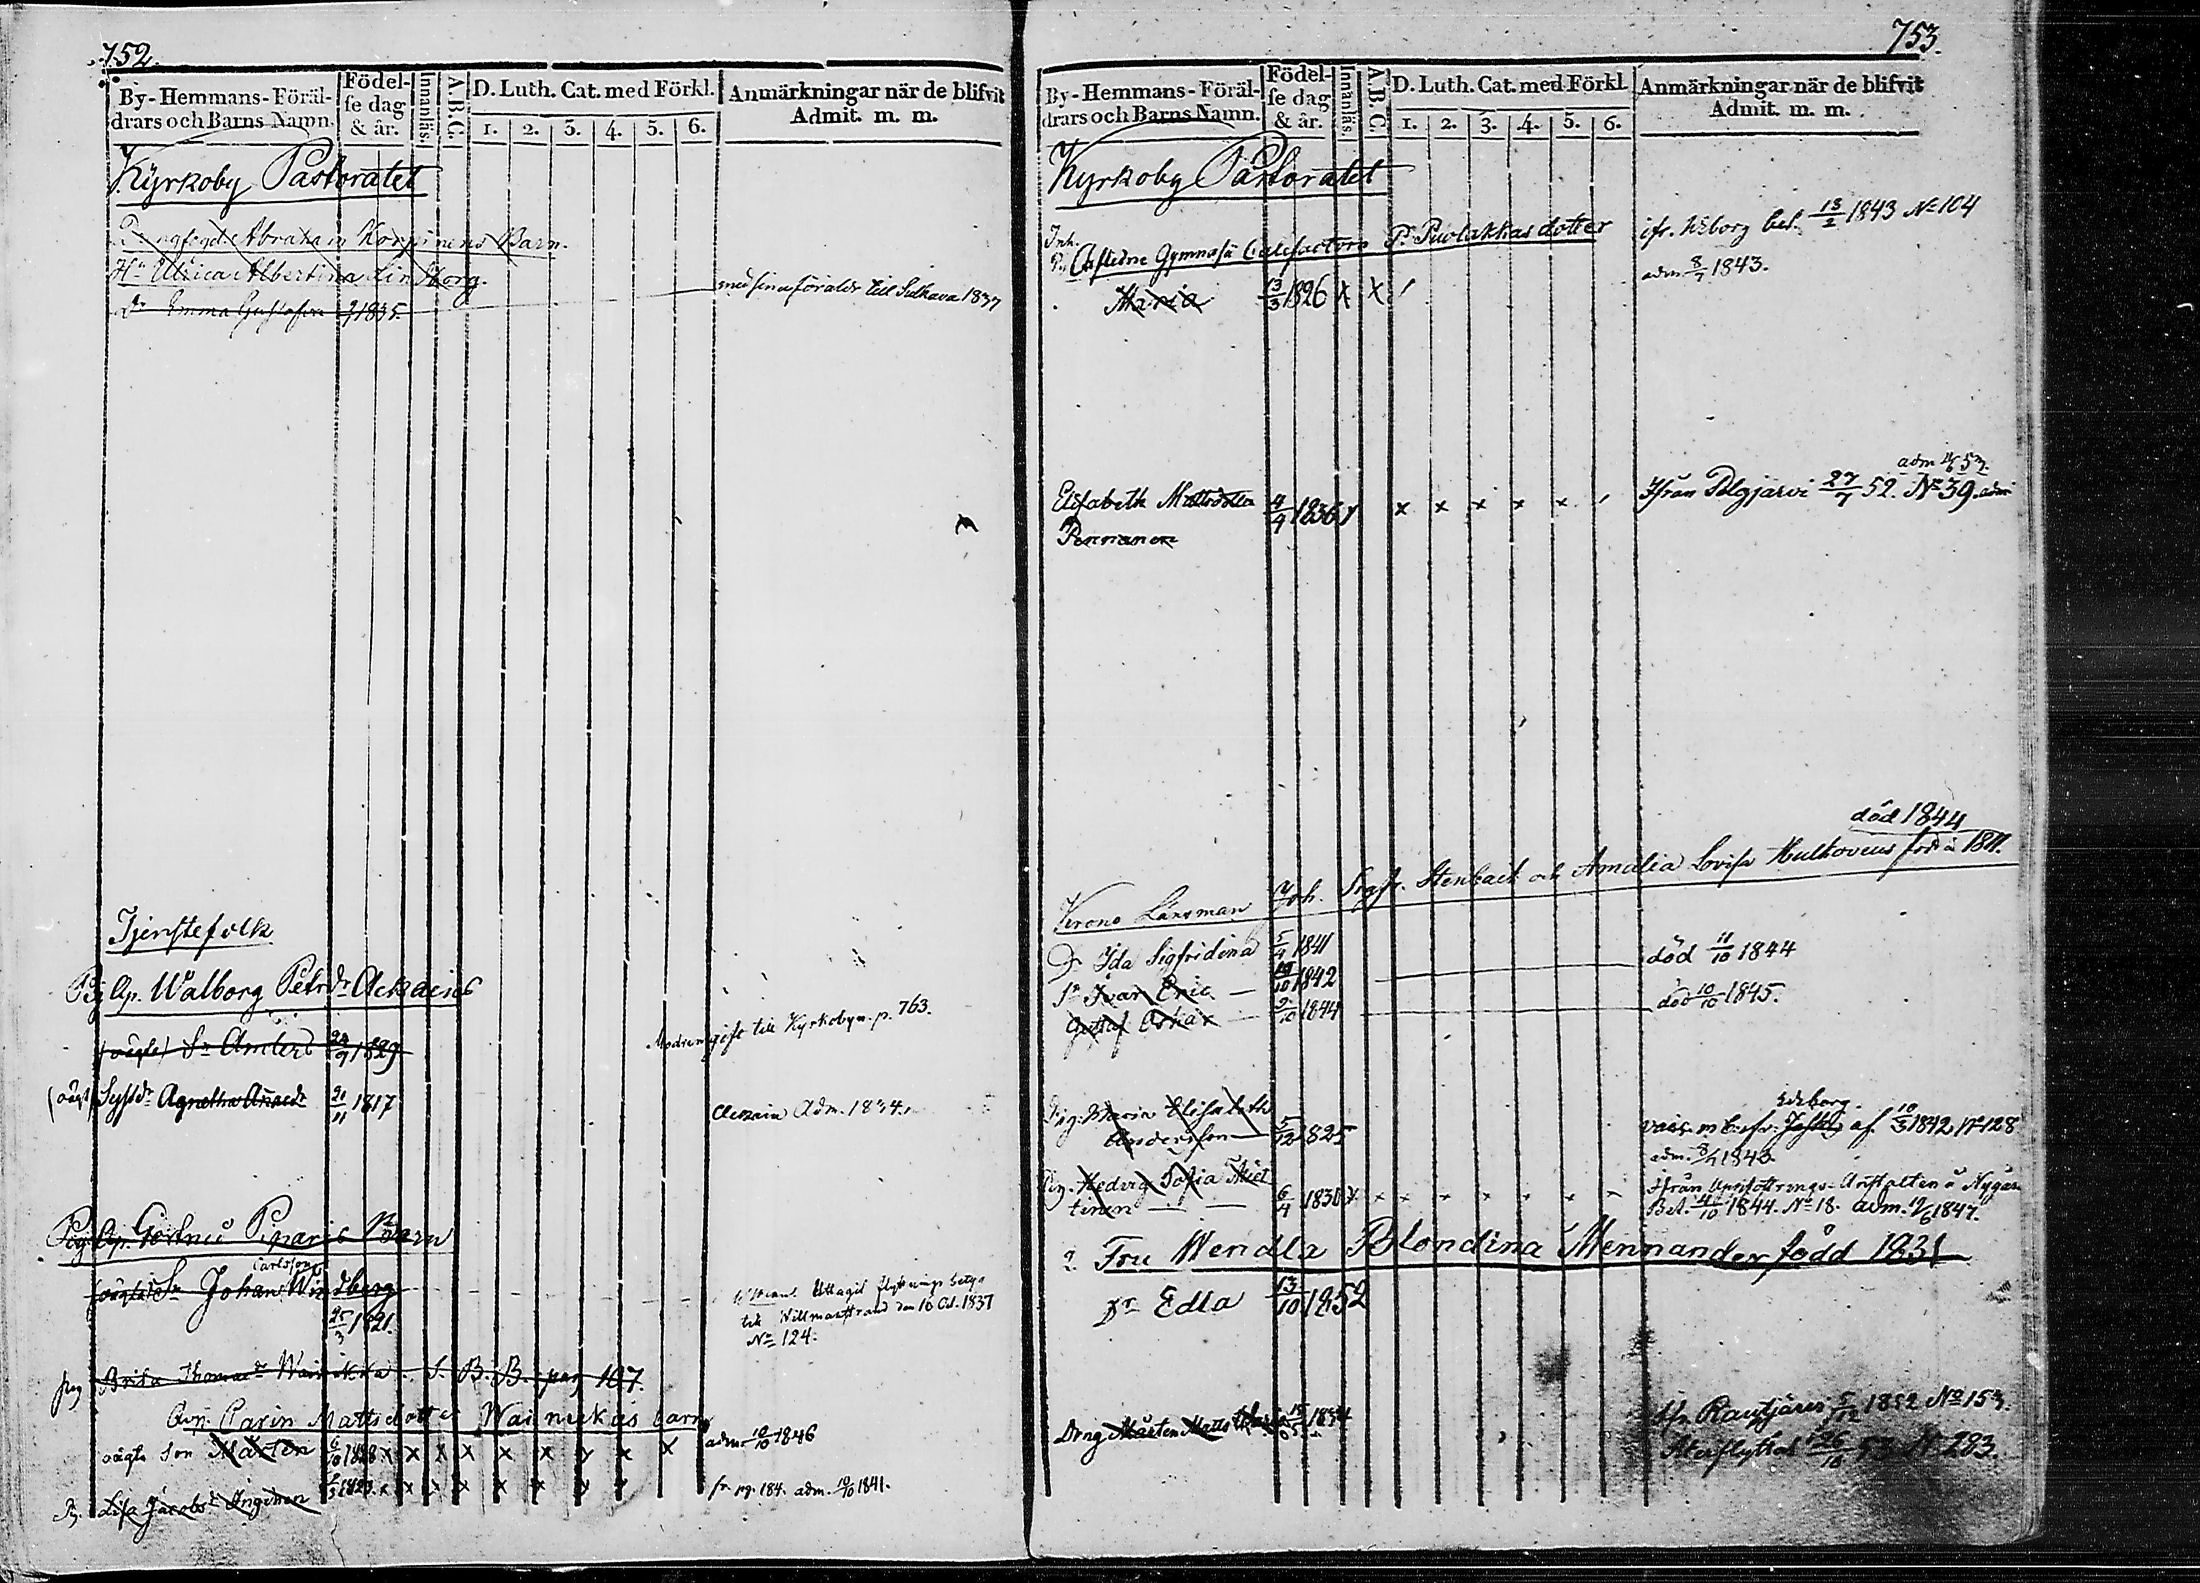 752.
By-Hemmans-Föräl-
drars och Barns Namn.
Födel-
se dag
& år.
Innanläs.
A.B.C.
D. Luth. Cat. med Förkl.
1. 2. 3. 4. 5. 6.
Anmärkningar när de blifvit
Admit. m. m.
Kyrkoby Pastoratet
Abraham Korpinens Barn.
Ulrica Albertina Lindborg.
Dr Emma Gustafva 1835.
med sina föräldr till Sulkava 1837
Tjenstefolk
Pig Ap. Walborg Petrdr Ackains
(oägta) Sn Anders 24/9 1829
Modren gift till Kyrkobyn p. 763.
(oägt) Systdr Agnetha 21/11 1817
Ackain Adm. 1834.
Pig Ap. Pipparis Barn
Carlsson
(oägta) Sn Johan Windberg
25/3 1821.
Uttagit flyttnings betyg
till Willmanstrand den 16 Oct. 1837
No 124.
pig Brita Thomasdr Wainikka. S. B. B. pag 107.
Carin Mattsdotter Wainickas barn
oägta Son Mårten 6/10 1828 x x x x x x x x x
adm. 10/10 1846
P. Lisa Jacobsdr Inginen 1823. x x x x x x x x
fr pg. 184. adm. 10/10 1841.
753.
By-Hemmans-Föräl-
drars och Barns Namn.
Födel-
se dag
& år.
Innanläs.
A.B.C.
D. Luth. Cat. med Förkl.
1. 2. 3. 4. 5. 6.
Anmärkningar när de blifvit
Admit. m. m.
Kyrkoby Pastoratet
Inh.
Gymnasii Calefactors P. Puolakkas dotter
ifr. Wiborg bet. 13/2 1843 No 104
Maria 13/3 1826 x x
adm 8/7 1843.
adm 53.
Elisabeth Mattsdotter 4/4 1836 x x x x x x
Ifrån Pelgjärvi 27/7 52. No 39. adm
Pennanen
död 1844
Krono Länsman Joh. Sigfr. Stenbäck och Amalia Lovisa Hulkovius född 1811.
Dr Ida Sigfridina 5/4 1841
död 11/10 1844
Sn Ivar Eric 1842
död 10/10 1845.
Gustaf Oskar 2/10 1844
Pig. Maria Elisabeth
Andersson 5/12 1825
Wiborg
af 10/3 1842 No 128
adm. 8/7 1843.
Pig. Hedvig Sofia Miet
tinen 6/4 1830 x x x x x x x
Ifrån Uppfostrings-Anstalten å Nygår
Bet. 4/10 1844. No 18. adm. 1847.
2. Fru Wendla Blondina Mennander född 1831
Dr Edla 13/10 1852
Drng Mårten Matts 1834
Ifr Rautjärvi 5/12 1852 No 153.
Återflyttat 26/10 53 No 283.